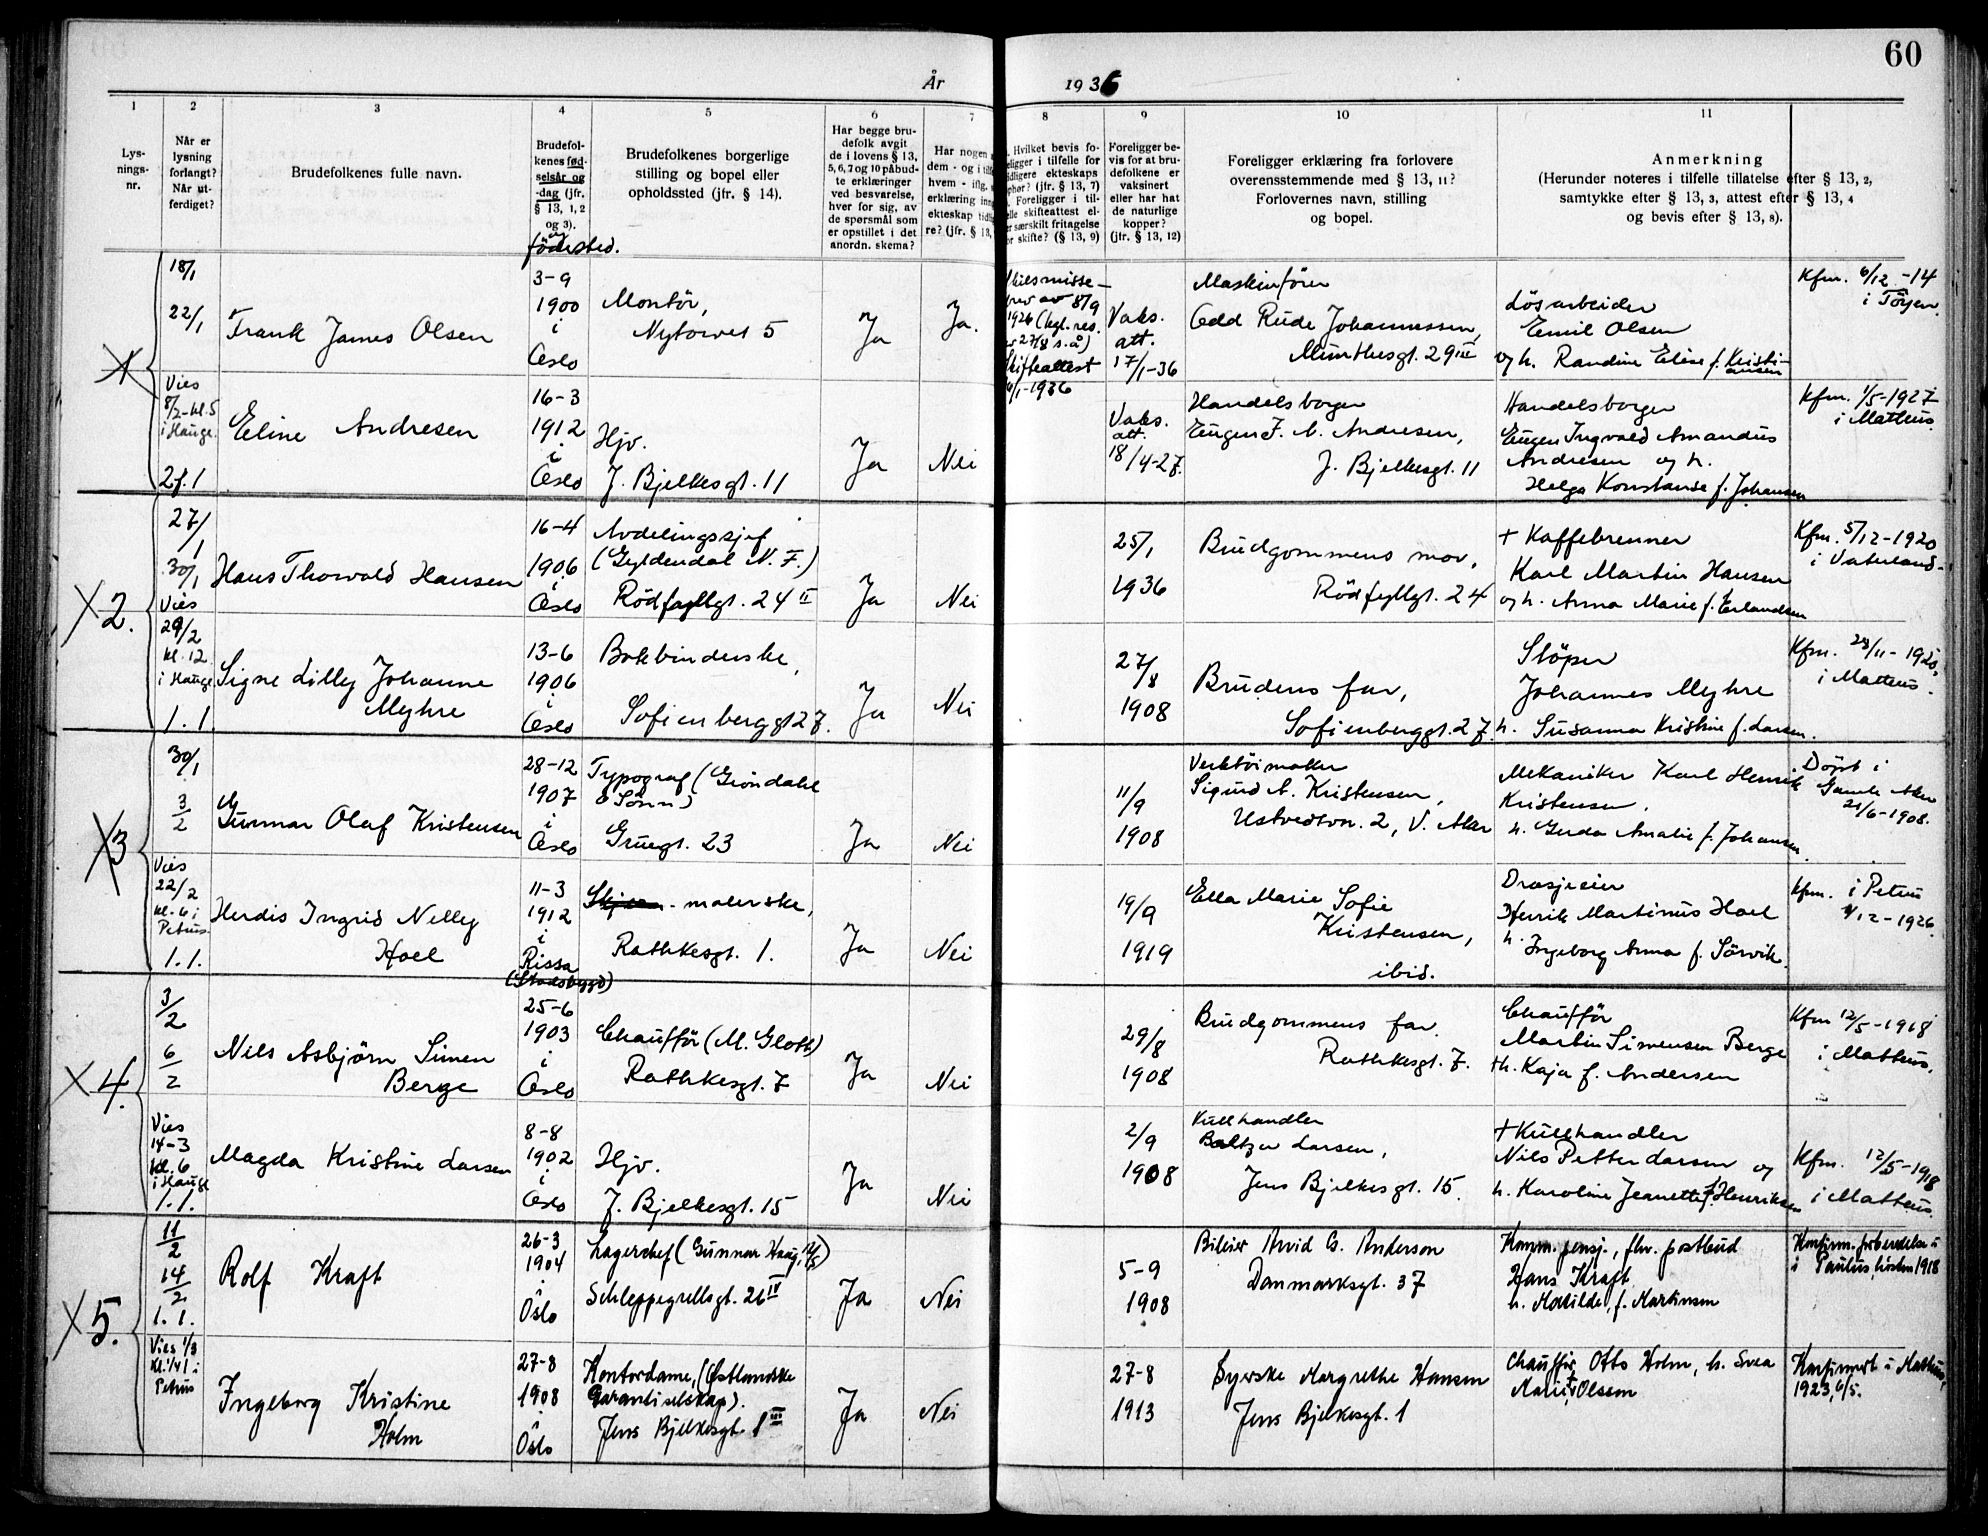 60
År 1936
1
2
3
4
5
6
7
8
9
10
11
Lys-
nings-
nr.
Når er
lysning
forlangt?
Når ut-
ferdiget?
Brudefolkenes fulle navn.
Brudefol-
kenes fød-
selsår og
-dag (jfr.
§ 13, 1, 2
og 3).
og
fødested.
Brudefolkenes borgerlige
stilling og bopel eller
opholdssted (jfr. § 14).
Har begge bru-
defolk avgit
de i lovens § 13,
5, 6, 7 og 10 påbud-
te erklæringer
ved besvarelse,
hver for sig, av
de spørsmål som
er opstillet i det
anordn. skema?
Har nogen
dem - og i
hvem - iflg.
erklæring
ekteskap
re? (jfr. § 13,
Hvilket bevis fo-
religger i tilfelle for
tidligere ekteskaps
ophør? (jfr. § 13, 7)
Foreligger i til-
felle skifteattest el-
er særskilt fritagelse
for skifte? (§ 13, 9)
Foreligger be-
vis for at bru-
defolkene er
vaksinert
eller har hat
de naturlige
kopper?
(jfr. § 13, 12)
Foreligger erklæring fra forlovere
overensstemmende med § 13, 11?
Forlovernes navn, stilling
og bopel.
Anmerkning
(Herunder noteres i tilfelle tillatelse efter § 13, 2,
samtykke efter § 13, 3, attest efter § 13, 4
og bevis efter § 13, 8).
1
18/1
22/1
Frank James Olsen
3-9
1900
i
Oslo
Montör,
Nytorvet 5
Ja
Ja.
av 8/9
1926 (kgl. res.
27/8 s.å)
Skifteattest
1936
Vaks.
att.
17/1-36
Maskinförer
Odd Rude Johannessen,
Munthesgt. 29 III
Lösarbeider
Emil Olsen
og h. Randine Elise f. Kristi-
ansen
Kfm. 6/12-14
i Töyen.
Vies
8/2-kl.5
i Hauge.
2f.1
Eline Andresen
16-3
1912
i
Oslo
Hjv.
J. Bjelkesgt. 11
Ja
Nei
Vaks.
att.
18/4-27.
Handelsborger
Eugen I. A. Andresen,
J. Bjelkesgt. 11
Handelsborger
Eugen Ingvald Amandus
Andresen og h.
Helga Konstanse f. Johansen
Kfm. 1/5-1927
i Matteus.
2.
27/1
30/1
Hans Thorvald Hansen
16-4
1906
i
Oslo
Avdelingssjef
(Gyldendal N. F.)
Rödfyllgt. 24 II
Ja
Nei
25/1
1936
Brudgommens mor,
Rödfyllgt. 24
+ Kaffebrenner
Karl Martin Hansen
og h. Anna Marie f. Erlandsen
Kfm. 5/12-1920
i Vaterland.
Vies
29/2
kl. 12
i Hauge
1.1.
Signe Lilly Johanne
Myhre
13-6
1906
i
Oslo
Bokbinderske,
Sofienberggt 27.
Ja
Nei
27/8
1908
Brudens far,
Sofienberggt. 27.
Stöper
Johannes Myhre
h. Susanna Kristine f. Larsen.
Kfm. 28/11-1920,
i Matteus.
3
30/1
3/2
Gunnar Olaf Kristensen
28-12
1907
i
Oslo
Typograf (Gröndahl
& Sönn)
Gruegt. 23
Ja
Nei
11/9
1908
Verktöimaker
Sigurd A. Kristensen,
Ustvedtvn. 2, V. Aker
Mekaniker Karl Henrik
Kristensen.
h. Gerda Amalie f. Johansen.
Döpt i
Gamle Aker
21/6-1908.
Vies
22/2
kl. 6 i
Petrus
1.1.
Herdis Ingrid Nelly
Hoel
11-3
1912
i
Rissa
(Stadsbygd)
-malerske,
Rathkesgt. 1.
Ja
Nei
19/9
1919
Ella Marie Sofie
Kristensen,
ibid.
Drosjeeier
Henrik Martinus Hoel
h. Ingeborg Anna f. Sörvik.
Kfm. i Petrus
/12-1926.
4.
3/2
6/2
Nils Asbjörn Simen
Berge
25-6
1903
i
Oslo
Chaufför (M. Gloth)
Rathkesgt. 7
Ja
Nei
29/8
1908
Brudgommens far.
Rathkesgt. 7.
Chaufför
Martin Simensen Berge
+h. Kaja f. Andersen
Kfm 12/5-1918
i Matteus.
Vies
14-3
kl. 6
i Hauge
1.1.
Magda Kristine Larsen
8-8
1902
i
Oslo
Hjv.
J. Bjelkesgt. 15
Ja
Nei
2/9
1908
Kullhandler
Baltzer Larsen,
Jens Bjelkesgt. 15.
+Kullhandler
Nils Petter Larsen og
h. Karoline Jeanette f. Henriksen
Kfm. 12/5-1918
i Matteus.
5.
11/2
14/2
1.1.
Rolf Kraft
26-3
1904
i
Oslo
Lagerchef (Gunnar Haag, A/S)
Schleppegrellsgt. 26 IV
Ja
Nei
5-9
1908
Bileier Arvid G. Anderson
Danmarksgt. 37
Komm. pensj., fhv. postbud
Hans Kraft
h. Matilde, f. Martinsen
Konfirm. forberedelse i
i Paulus, hösten 1918
Vies 1/3
kl. 1/41 i
Petrus
Ingeborg Kristine
Holm
27-8
1908
i
Oslo
Kontordame, (Østlandske
Garantiselskap).
Jens Bjelkesgt. 1 III
Ja
Nei
27-8
1913
Syerske Margrethe Hansen
Jens Bjelkesgt. 1
Chaufför Otto Holm, h. Svea
Marie f. Olsson
Konfirmert i Matheus,
1923, 6/5.